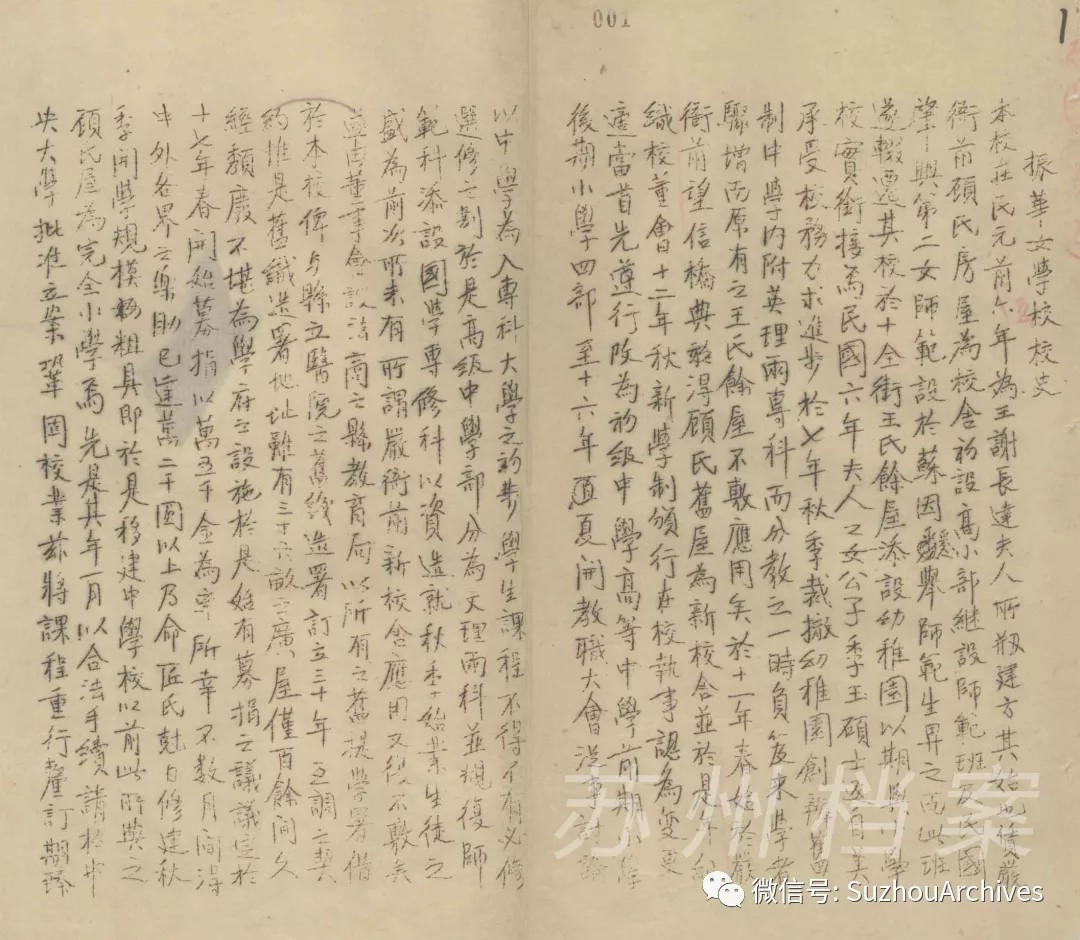 001
1
振華女學校校史
本校在民元前六年為王謝長達夫人所剏建方其始也僦嚴
衙前顧氏房屋為校舍初設高小部継設師範班及民國
肇興第二女師範設於蘇因舉師範生畀之而此班
遂輟遷其校於十全街王氏餘屋添設幼稚園以期與小學
校實銜接焉民國六年夫人之女公子季玉碩士返自美
承受校務力求進步於七年秋季裁撤幼稚園創辦舊四
制中學內附英理兩專科而分教之一時負笈來學者
驟增而原有之王氏餘屋不敷應用矣於十一年春始於嚴
衙前望信橋典得顧氏舊屋為新校舍並於是年組
織校董會十二年秋新學制頒行在校執事認為變更
適當首先遵行改為初級中學高等中學前期小學
後期小學四部至十六年夏開教職大會從事討論
以中學為入專科大學之初步學生課程不得不有必修
選修之制於是高級中學部分為文理兩科並規復師
範科添設國學專修科以資造就秋季始業生徒之
盛為前次所未有所謂嚴衙前新校舍應用又復不敷矣
校董事會設法商之縣教育局以所有之舊提學署借
於本校俾與縣立醫院之舊織造署訂立三十年互調之契
約惟是舊織造署地址雖有三十六畝之廣屋僅百餘間久
經頹廢不堪為學府之設施於是始有募捐之議議定於
十七年春開始募捐以萬五千金為率所幸不數月間得
中外各界之樂助已達萬二千圓以上乃命匠氏尅日修建秋
季開學規模粗具即於是移建中學校以前此所典之
顧氏屋為完全小學焉先是其年一月以合法手續請於中
央大學批准立案鞏固校業茲將課程重行釐訂期臻
苏州档案
微信号: SuzhouArchives